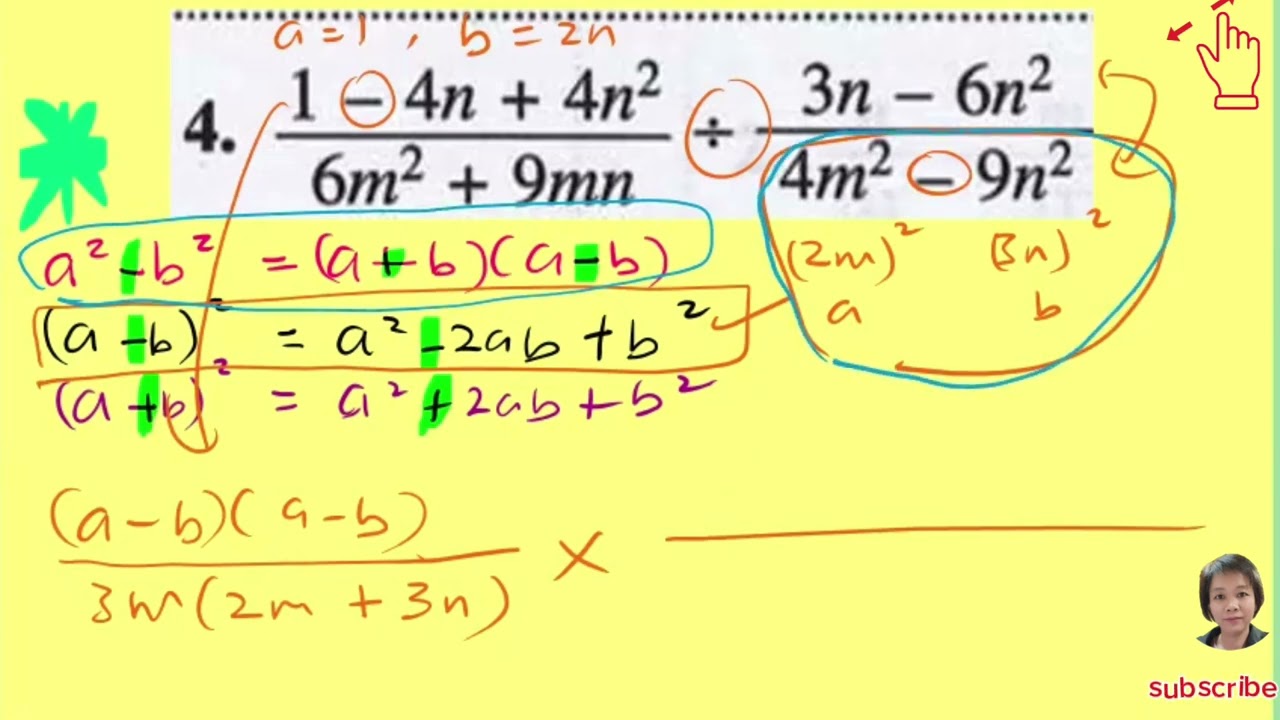 a = 1 , b = 2n
4. 1 − 4n + 4n² / 6m² + 9mn ÷ 3n − 6n² / 4m² − 9n²
(2m)² (3n)²
a b
a² - b² = (a + b)(a - b)
(a - b)² = a² - 2ab + b²
(a + b)² = a² + 2ab + b²
(a - b)(a - b) / 3m(2m + 3n) ×
subscribe